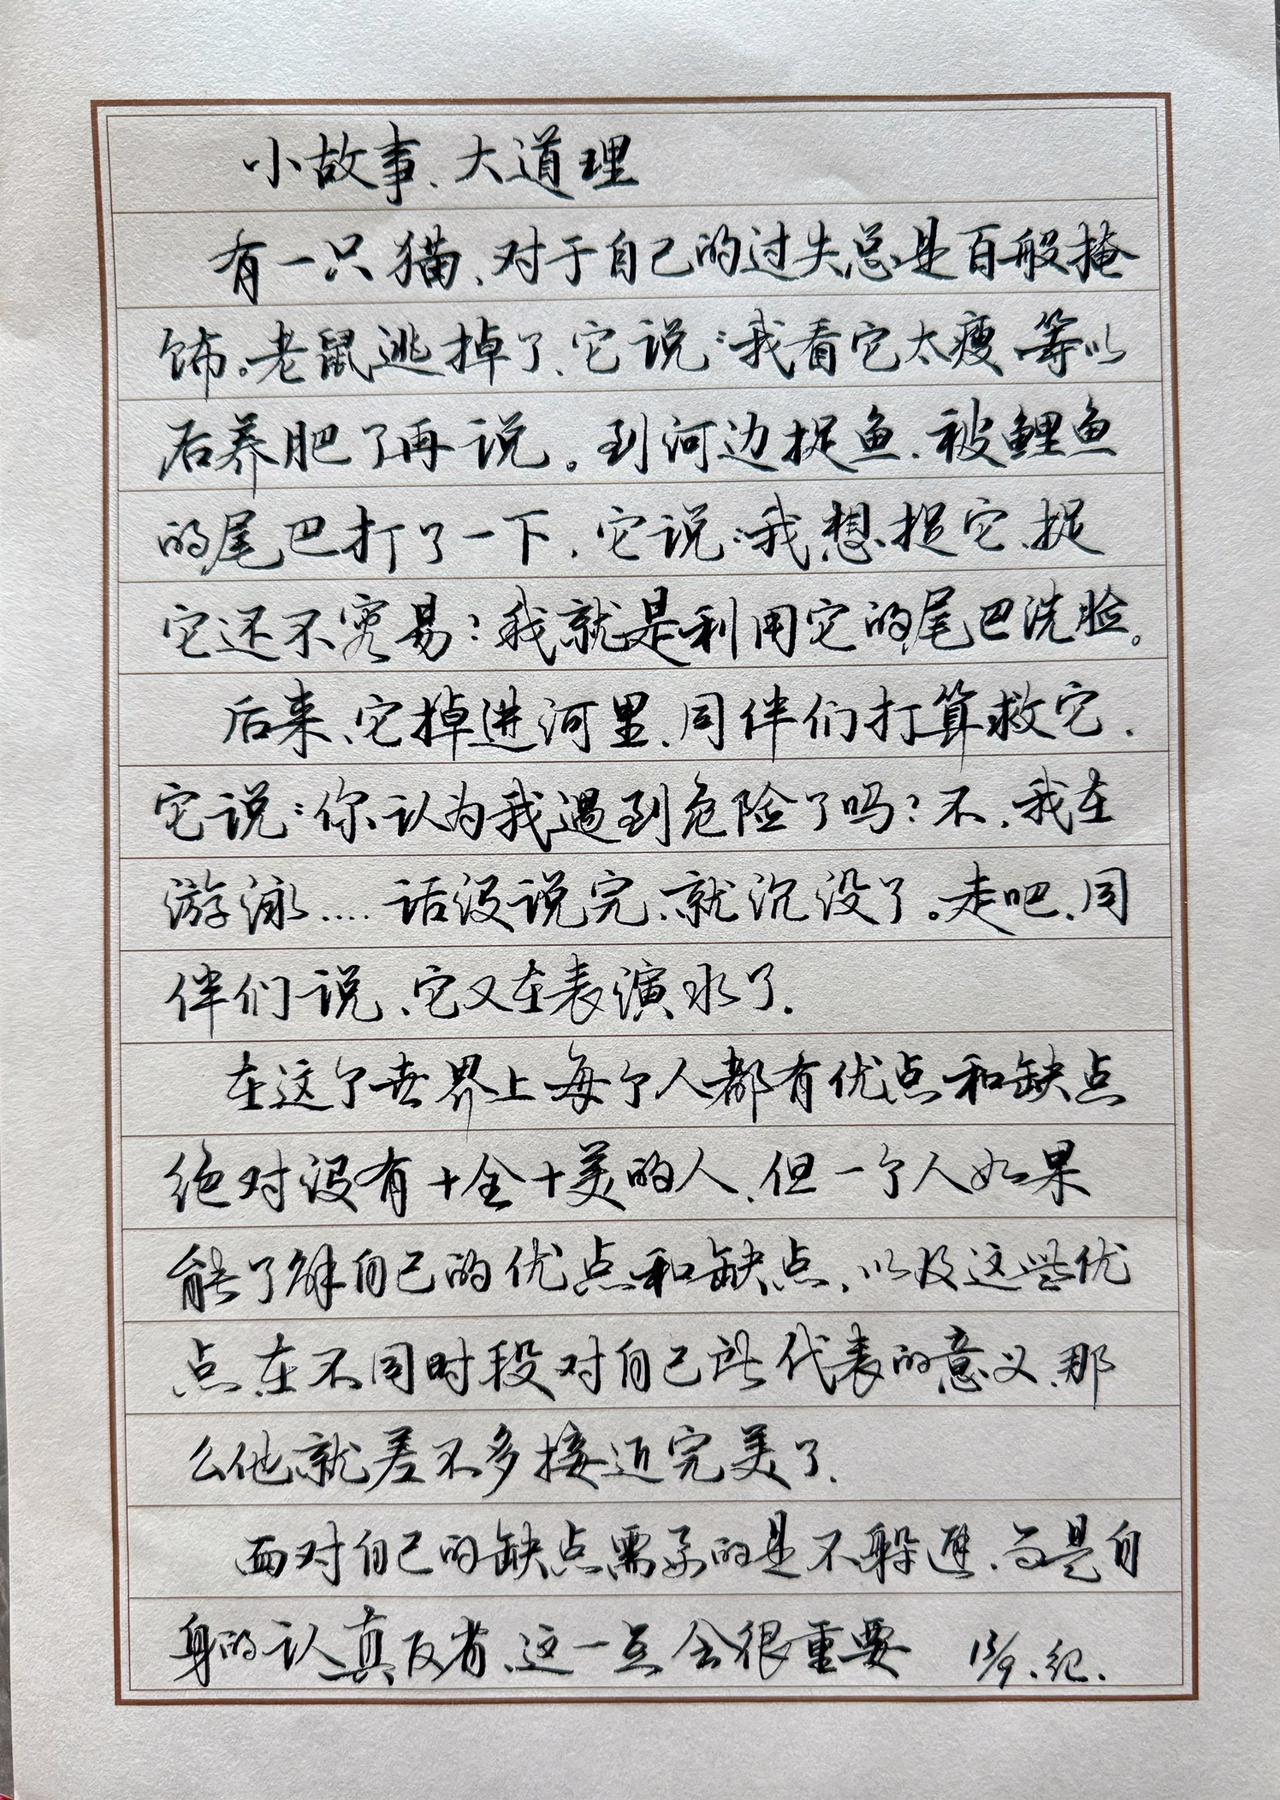 小故事、大道理
有一只猫、对于自己的过失总是百般掩
饰。老鼠逃掉了、它说：我看它太瘦、等以
后养肥了再说。到河边捉鱼、被鲤鱼
的尾巴打了一下、它说：我想捉它、捉
它还不容易？我就是利用它的尾巴洗脸。
后来、它掉进河里、同伴们打算救它、
它说：你认为我遇到危险了吗？不、我在
游泳....话没说完、就沉没了。走吧、同
伴们说、它又在表演水了.
在这个世界上每个人都有优点和缺点
绝对没有十全十美的人、但一个人如果
能了解自己的优点和缺点、以及这些优
点在不同时段对自己所代表的意义、那
么他就差不多接近完美了.
面对自己的缺点需要的是不躲避、而是自
身的认真反省、这一点会很重要 13/9.纪.